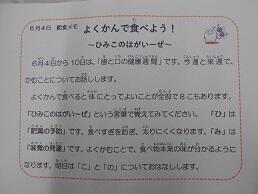 6月4日 給食メモ
よくかんで食べよう！
～ひみこのはがいーぜ～
6月4日から10日は、「歯と口の健康週間」です。今週と来週で、
かむことについてお話しします。
よくかんで食べると体にとってよいことが全部で8こもあります。
「ひみこのはがいーぜ」という言葉で覚えてみてください。「ひ」は
「肥満の予防」です。食べすぎを防ぎ、太りにくくなります。「み」は
「味覚の発達」です。よくかむことで、食べ物本来の味が分かるように
なります。明日は「こ」と「の」についてお話しします。